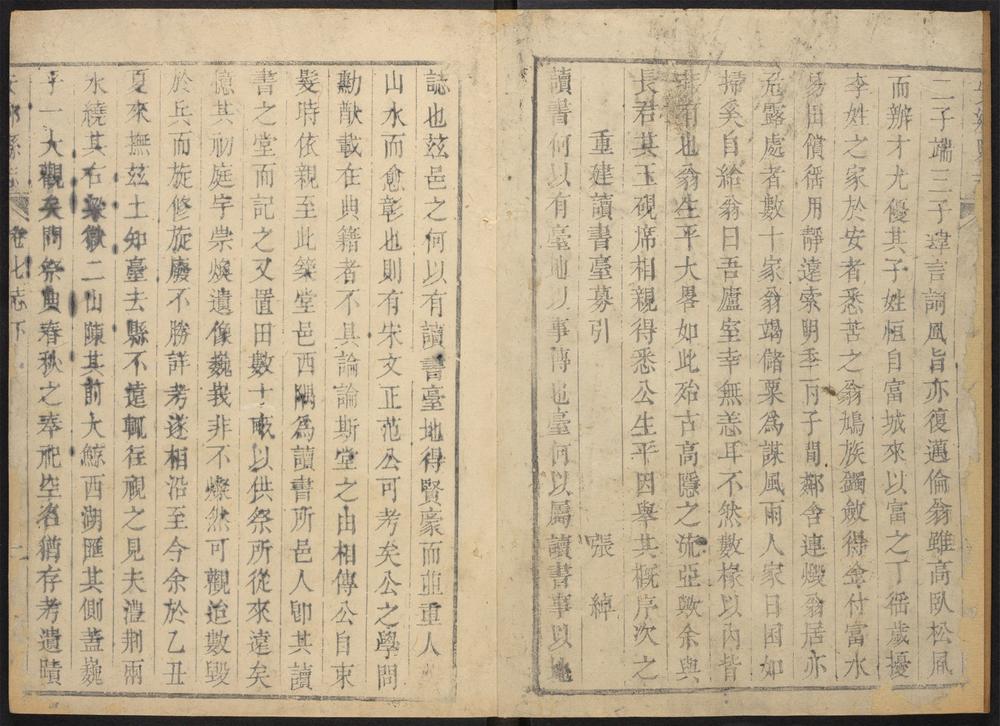 二子端三子諱言詞風旨亦復邁倫翁雖高臥松風
而辦才尤優其子姓恒自富城來以富之丁徭歲擾
李姓之家於安者悉苦之翁鳩族蠲斂得金付富水
易田償徭用靜達索明季丙子閒鄰舍連燬翁居亦
危露處者數十家翁竭儲粟為謀風雨人家日困如
掃奚自給翁曰吾廬室幸無恙耳不然數椽以內皆
非有也翁生平大畧如此殆古高隱之流亞歟余與
長君其玉硯席相親得悉公生平因舉其概序次之
重建讀書臺募引 張綽
讀書何以有臺地以事傳也臺何以屬讀書事以地
誌也玆邑之何以有讀書臺地得賢豪而並重人
山水而愈彰也則有宋文正范公可考矣公之學問
勳猷載在典籍者不具論論斯堂之由相傳公自束
髮時依親至此築堂邑西隅為讀書所邑人卽其讀
書之堂而記之又置田數十畝以供祭所從來遠矣
憶其初庭宇崇煥遺像巍峩非不燦然可觀迨數毀
於兵而旋修旋廢不勝詳考遂相沿至今余於乙丑
夏來撫玆土知臺去縣不遠輒徃視之見夫澧荆兩
水繞其右梁獄二山陳其前大鯨西湖匯其側蓋巍
乎一大觀矣問祭典春秋之奉祀空名猶存考遺蹟
卷七志下